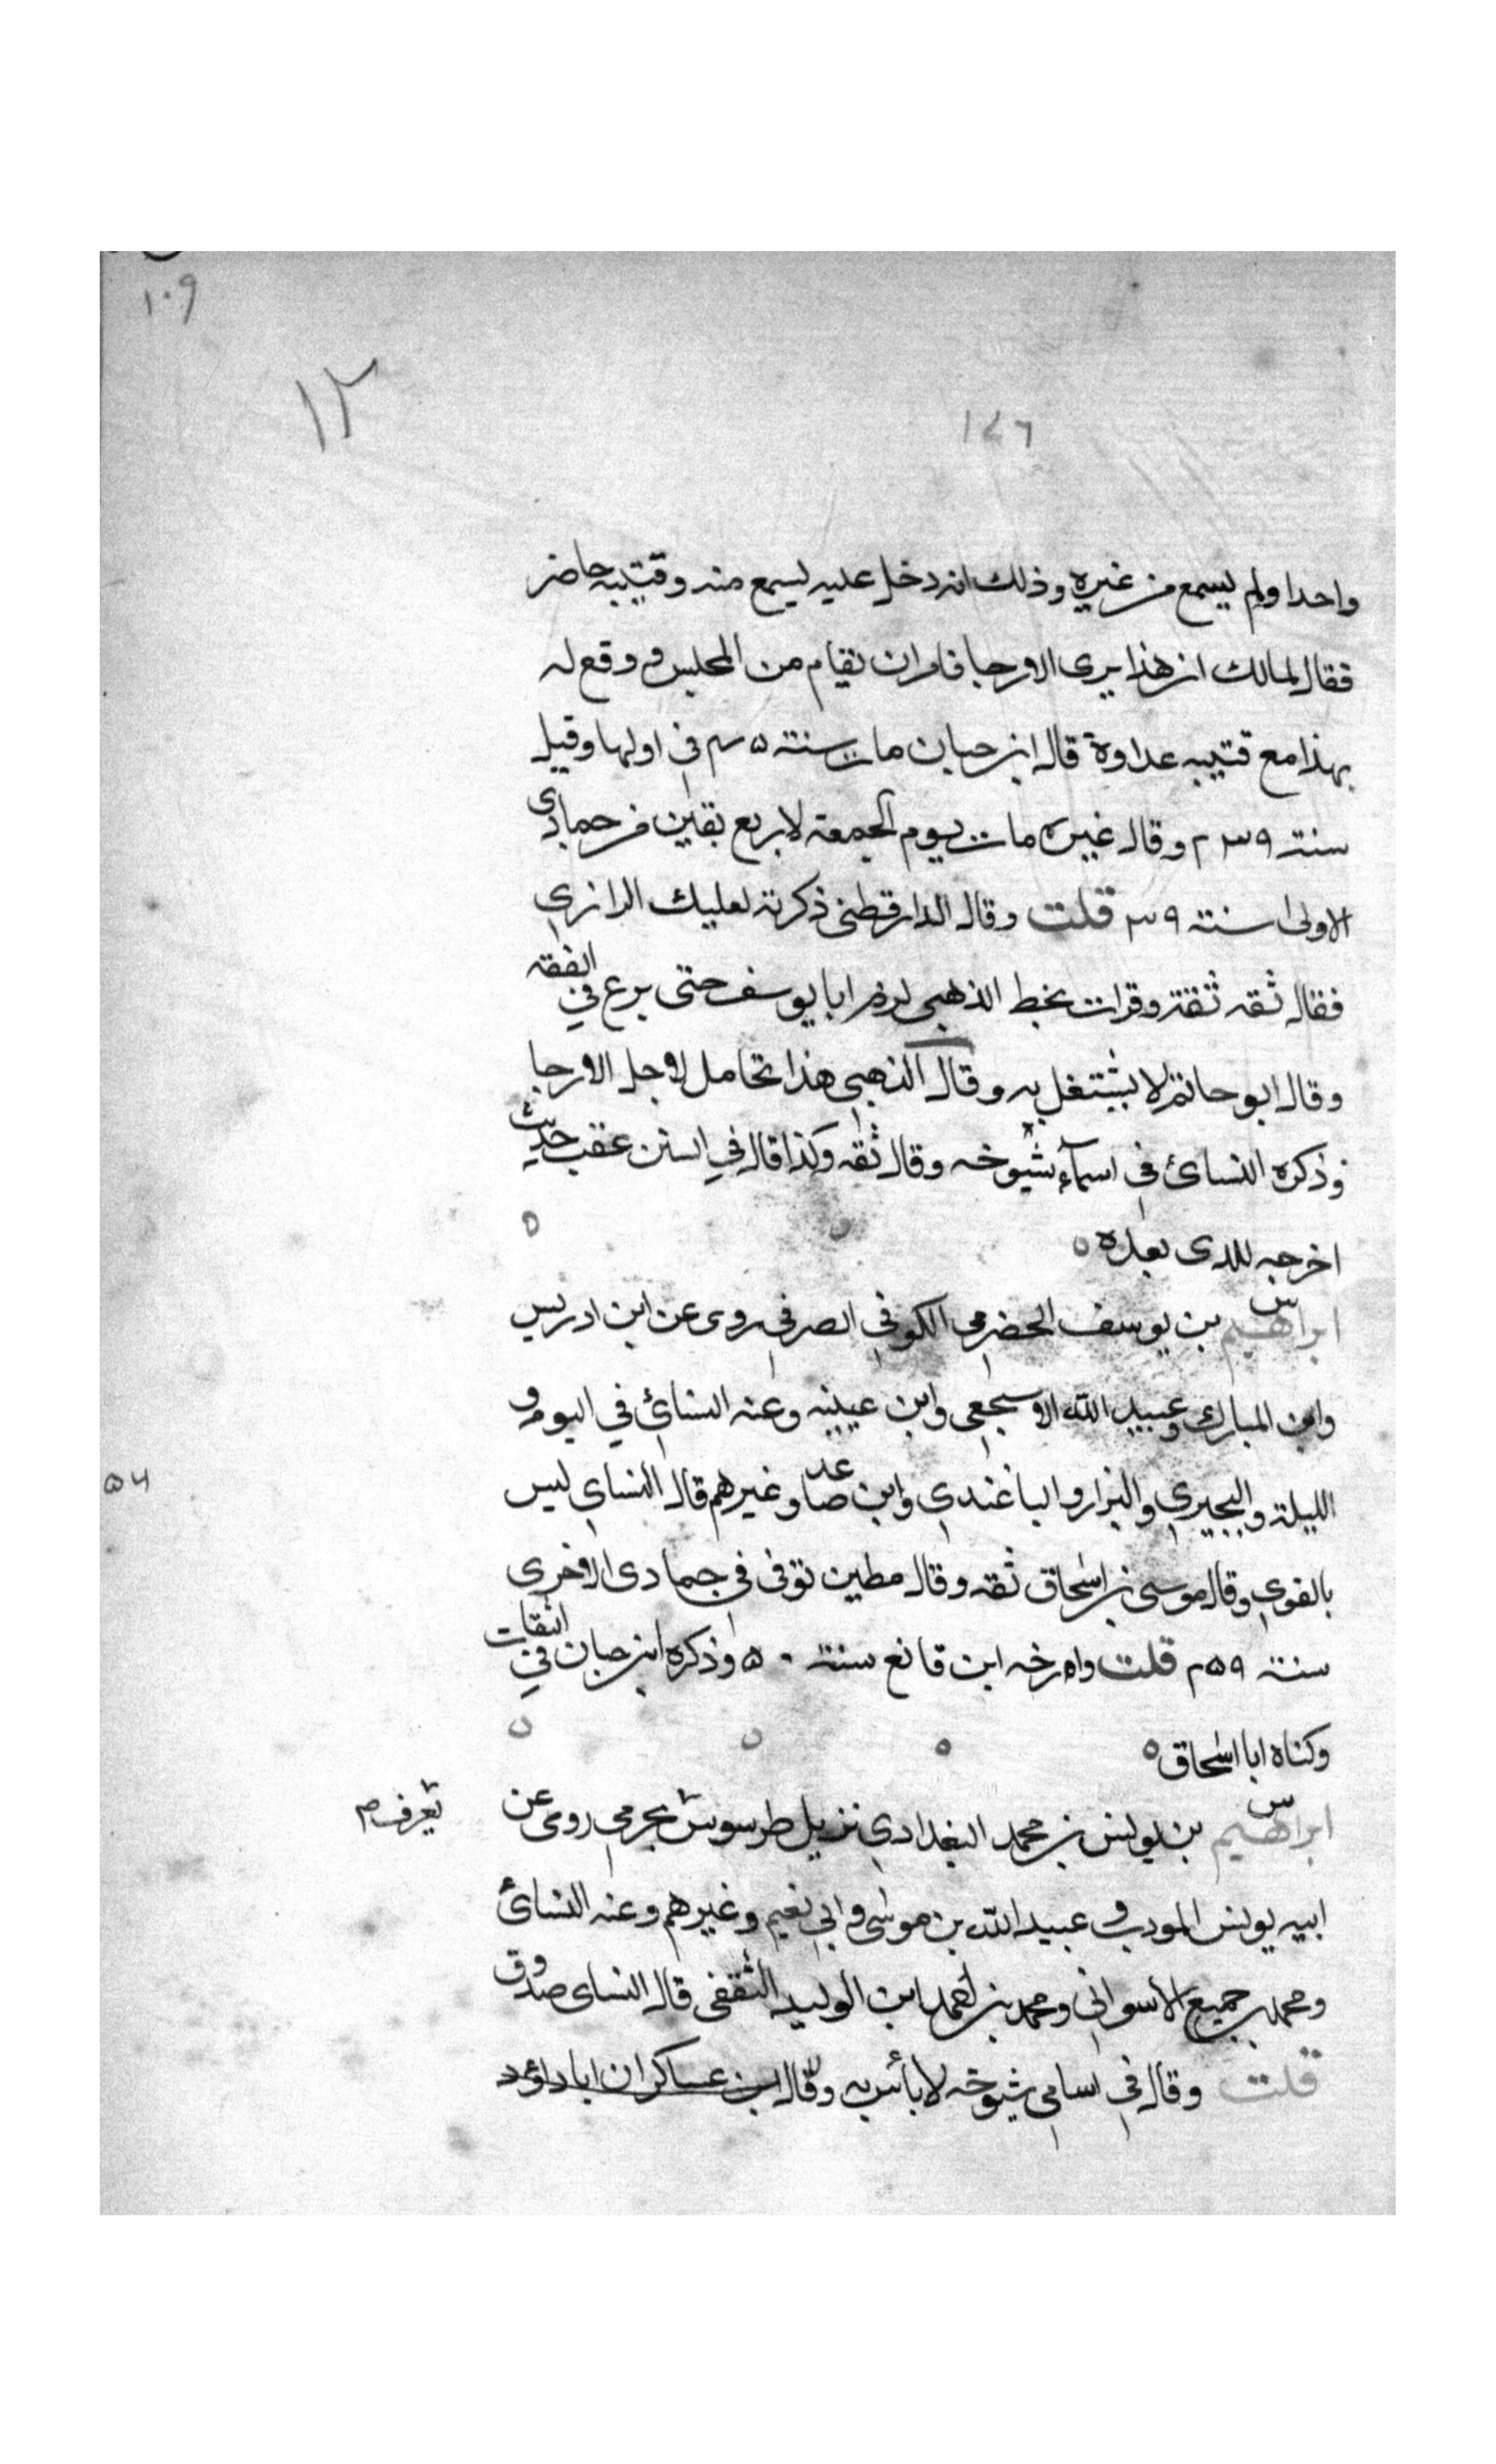 ١٠٩
١٢
١٤٦
واحدا ولم يسمع من غيره وذلك انه دخل عليه ليسمع منه وقتيبه حاضر
فقال لمالك ان هذا يرى الارجا فامر ان يقام من المجلس ووقع له
بهذا مع قتيبه عداوة قال ابن حبان مات سنة في اولها وقيل
سنة ٢٣٩ وقال غيره مات يوم الجمعة لاربع بقين من جمادى
الاولى سنة ٢٣٩ قلت وقال الدارقطنى ذكرته لعليك الرازي
فقال ثقه ثقة وقرات بخط الذهبى لزم ابا يوسف حتى برع في الفقه
وقال ابو حاتم لا يشتغل به وقال الذهبى هذا تحامل لاجل الارجا
وذكره النسائ فى اسماء شيوخه وقال ثقه وكذا قال في السنن عقب حديث
اخرجه للدى بعده
ابراهيم س بن يوسف الحضرمى الكوفي الصرفي روى عن ابن ادريس
وابن المبارك وعبيد الله الاشجعى وابن عيينه وعنه النسائ في اليوم و
الليلة والبجيري والبزار والباغندي وابن صاعد وغيرهم قال النساي ليس
٥٤
بالقوي وقال موسى بن اسحاق ثقه وقال مطين توفى فى جمادى الاخرى
سنة قلت وارخه ابن قانع سنة ٥٠ وذكره ابن حبان في الثقات
وكناه ابا اسحاق
ابراهيم س بن يونس بن محمد البغدادي نزيل طرسوس بحرمي روى عن
يعرف
ابيه يونس المودب وعبيد الله بن موسى وابي نعيم وغيرهم وعنه النسائ
ومحمد بن جميع الاسواني ومحمد بن احمد ابن الوليد الثقفى قال النساي صدوق
قلت وقال فى اسامى شيوخه لا بأس به وقال ابن عساكر ان ابا داؤد